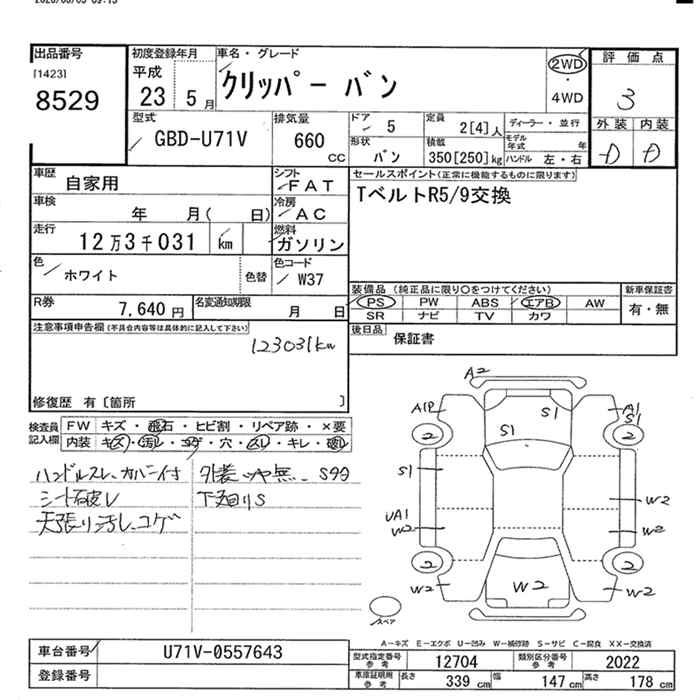 出品番号
[1423]
8529
初度登録年月
平成
23 5月
車名・グレード
クリッパー バン
2WD
・
4WD
評価点
3
外装 内装
D D
型式
GBD-U71V
排気量
660
CC
ドア
5
形状
バン
定員
2[4]人
積載
350[250]kg
ディーラー・並行
モデル年式 年
ハンドル 左・右
車歴
自家用
シフト
FAT
車検
年 月( 日)
冷房
AC
走行
12万3千031 km
燃料
ガソリン
色
ホワイト
色替
色コード
W37
R券
7,640円
名変通知期限
月 日
セールスポイント(正常に機能するものに限ります)
TベルトR5/9交換
装備品 (純正品に限り○をつけてください)
PS PW ABS エアB AW
SR ナビ TV カワ
新車保証書
有・無
後日品
保証書
注意事項申告欄(不具合内容等は具体的に記入して下さい)
123031km
修復歴 有[箇所 ]
検査員
記入欄
FW キズ・飛石・ヒビ割・リペア跡・×要
内装 キズ・汚れ・コゲ・穴・スレ・キレ・破れ
ハンドルスレ、カバー付
シート破レ
天張り汚レ、コゲ
外装ツヤ無、Sタタ
下廻りS
A2
A1P
A1
S1
S1
S1
2
2
S1
UA1
W2
W2
W2
2
2
W2
W2
W2
スペア
A－キズ E－エクボ U－凹み W－補修跡 S－サビ C－腐食 XX－交換済
車台番号
U71V-0557643
登録番号
型式指定番号
参考
12704
類別区分番号
参考
2022
車庫証明用
参考
長さ 339 cm 幅 147 cm 高さ 178 cm